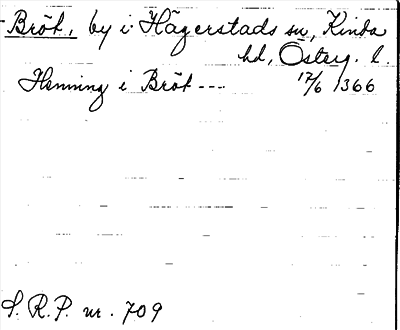 Bröt, by i Hägerstads sn, Kinda
hd, Österg. l.
Henning i Bröt --- 12/6 1366
S.R.P. nr. 709